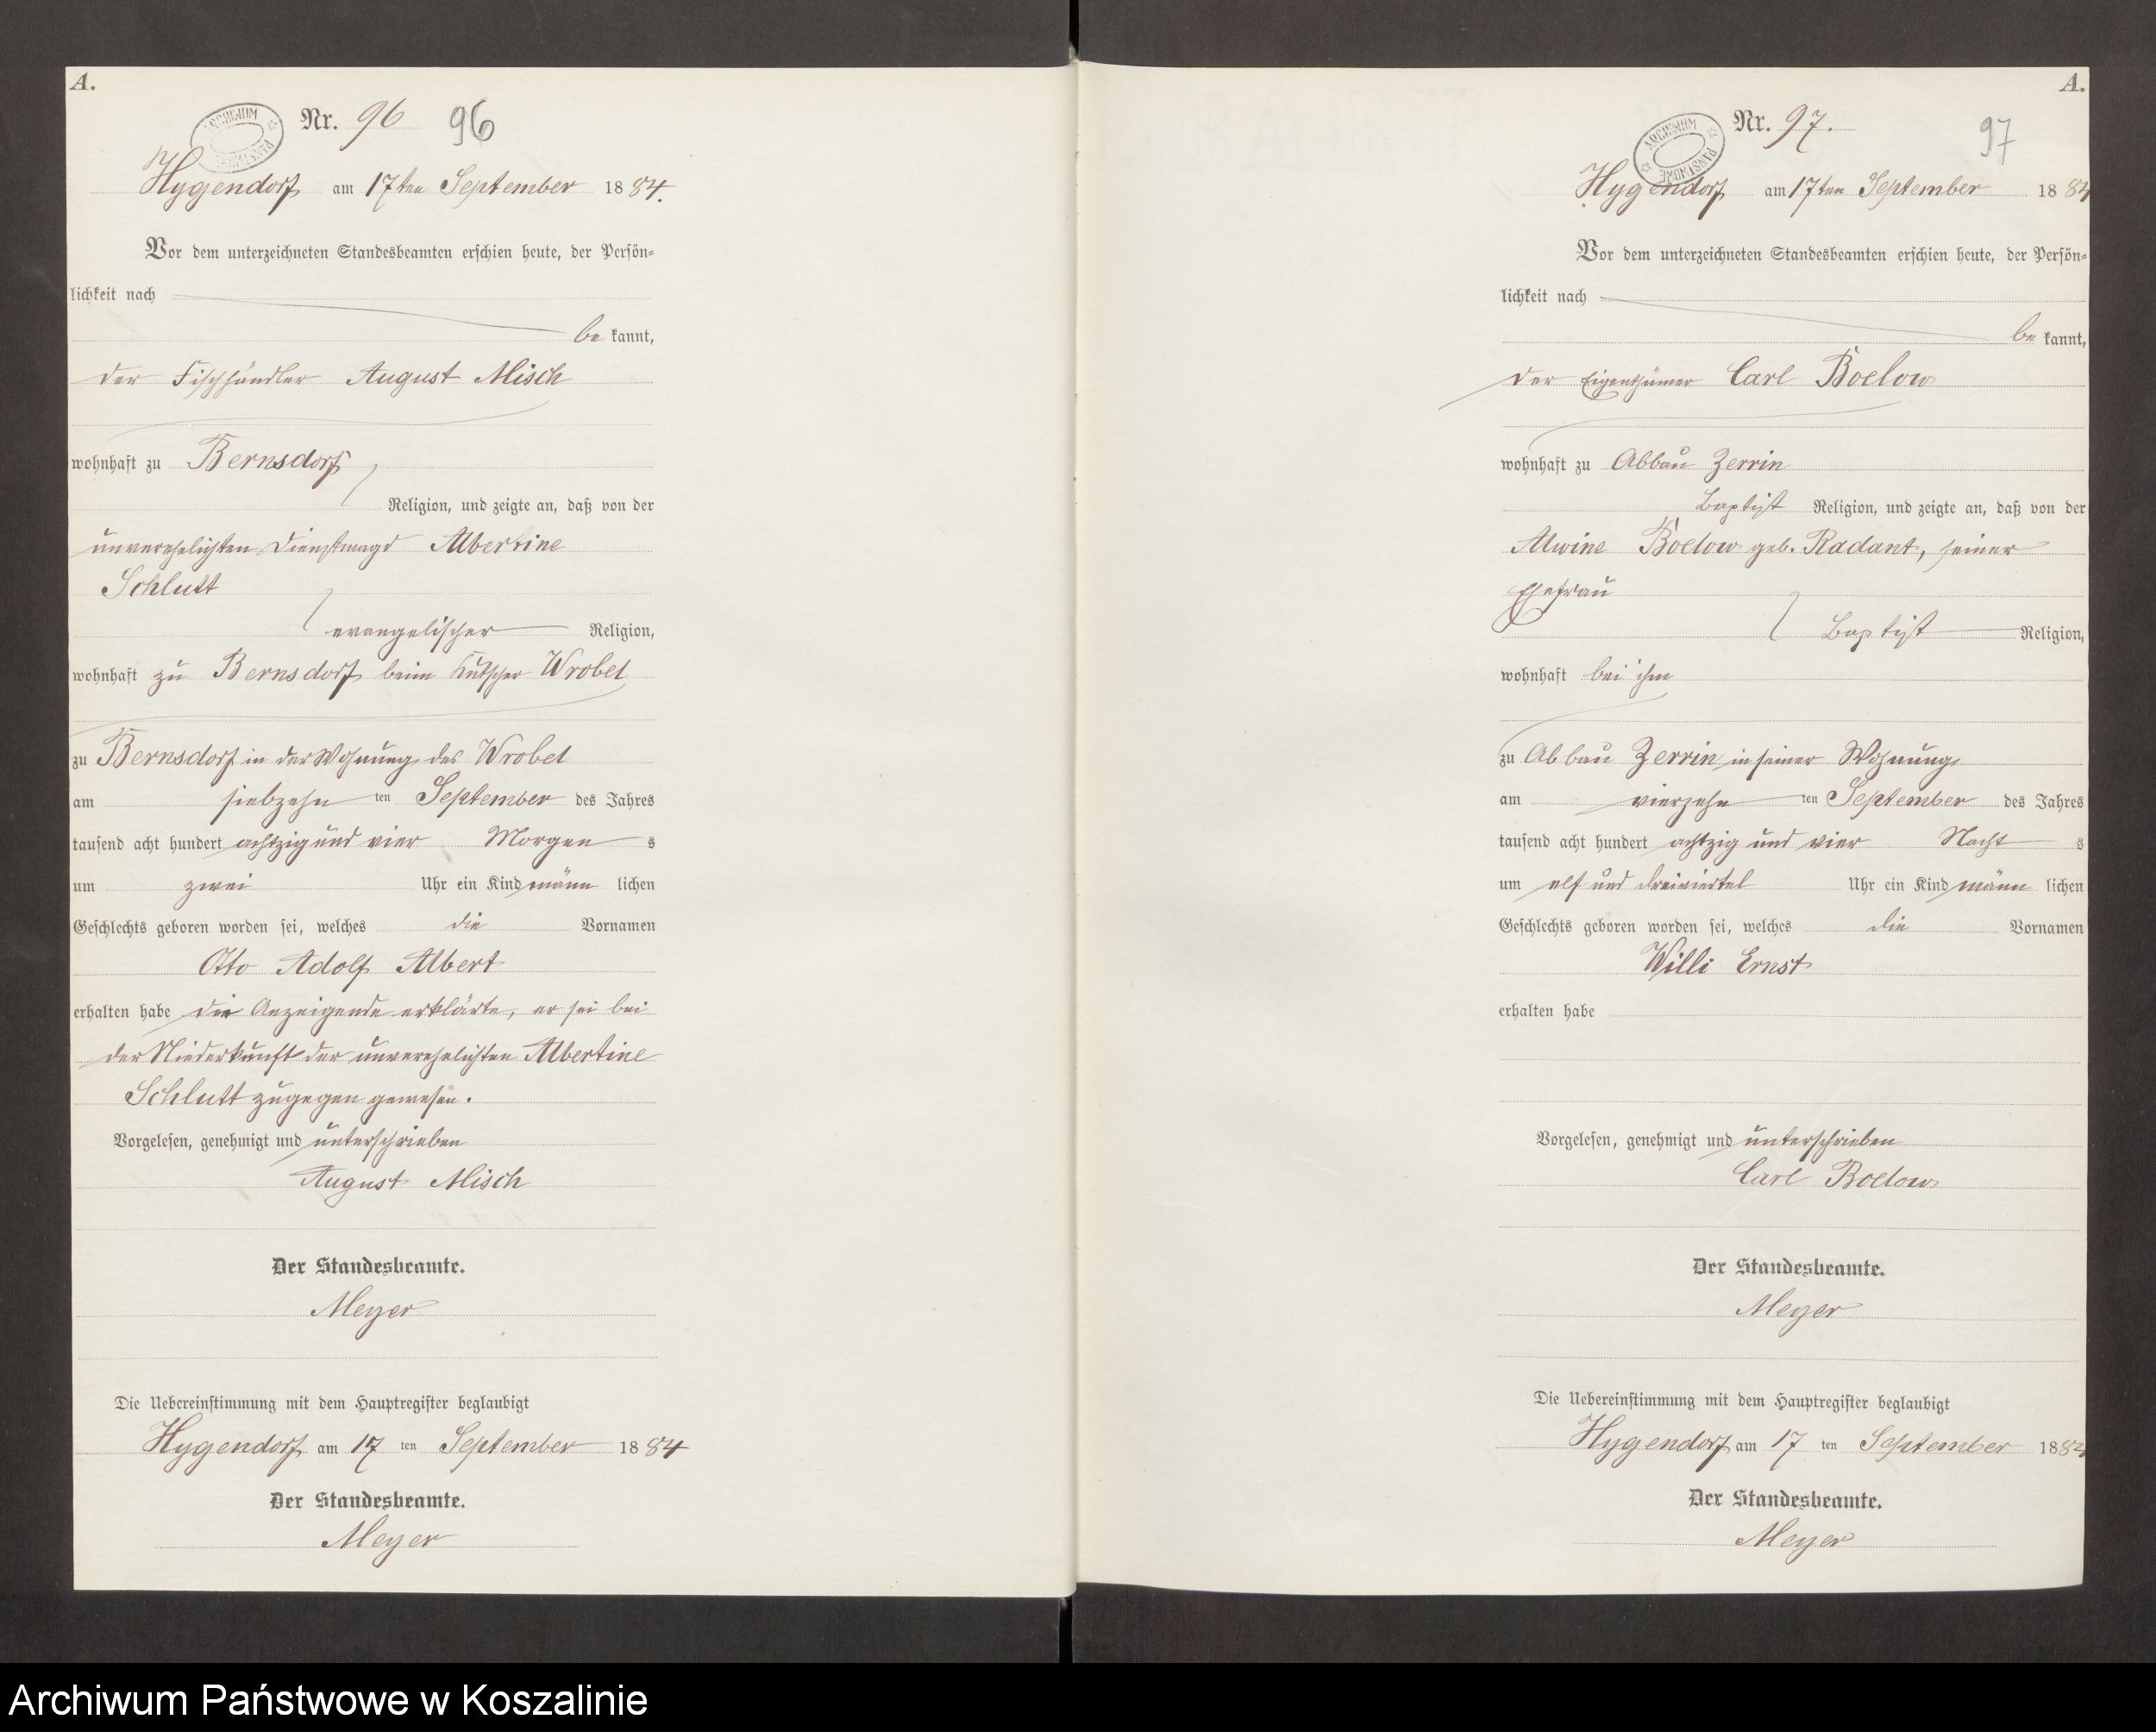 A.
Nr. 96 96
ARCHIWUM PAŃSTWOWE
Hygendorf am 17ten September 1884.
Vor dem unterzeichneten Standesbeamten erschien heute, der Persön=
lichkeit nach
be kannt,
der Fischhändler August Misch
wohnhaft zu Bernsdorf
Religion, und zeigte an, daß von der
unverehelichten Dienstmagd Albertine
Schlutt
evangelischer Religion,
wohnhaft zu Bernsdorf beim Kutscher Wrobel
zu Bernsdorf in der Wohnung des Wrobel
am siebzehn ten September des Jahres
tausend acht hundert achtzig und vier Morgen s
um zwei Uhr ein Kind männ lichen
Geschlechts geboren worden sei, welches die Vornamen
Otto Adolf Albert
erhalten habe die Anzeigende erklärte, er sei bei
der Niederkunft der unverehelichten Albertine
Schlutt zugegen gewesen.
Vorgelesen, genehmigt und unterschrieben
August Misch
Der Standesbeamte.
Meyer
Die Uebereinstimmung mit dem Hauptregister beglaubigt
Hygendorf am 17 ten September 1884
Der Standesbeamte.
Meyer
A.
Nr. 97. 97
ARCHIWUM PAŃSTWOWE
Hygendorf am 17ten September 1884
Vor dem unterzeichneten Standesbeamten erschien heute, der Persön=
lichkeit nach
be kannt,
der Eigenthümer Carl Boelow
wohnhaft zu Abbau Zerrin
Baptist Religion, und zeigte an, daß von der
Alwine Boelow geb. Radant, seiner
Ehefrau
Baptist Religion,
wohnhaft bei ihm
zu Abbau Zerrin in seiner Wohnung
am vierzehn ten September des Jahres
tausend acht hundert achtzig und vier Nacht s
um elf und dreiviertel Uhr ein Kind männ lichen
Geschlechts geboren worden sei, welches die Vornamen
Willi Ernst
erhalten habe
Vorgelesen, genehmigt und unterschrieben
Carl Boelow
Der Standesbeamte.
Meyer
Die Uebereinstimmung mit dem Hauptregister beglaubigt
Hygendorf am 17 ten September 1884
Der Standesbeamte.
Meyer
Archiwum Państwowe w Koszalinie